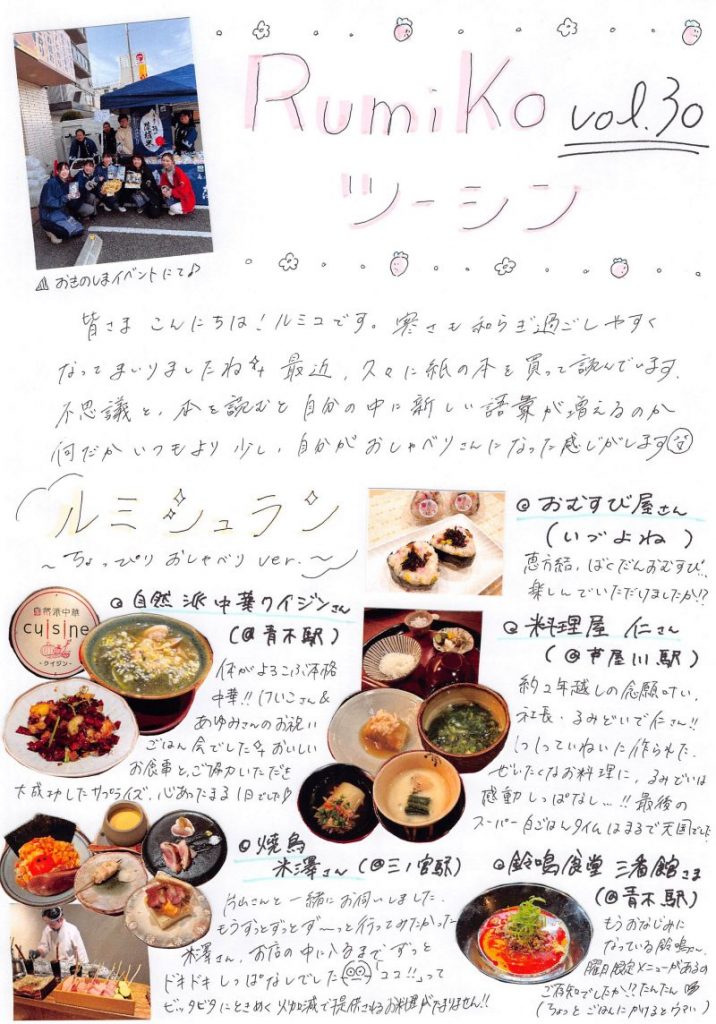 RumiKo vol.30
ツーシン
おきのしまイベントにて♪
皆さま こんにちは！ルミコです。寒さも和らぎ過ごしやすく
なってまいりましたね 最近、久々に紙の本を買って読んでいます。
不思議と、本を読むと自分の中に新しい語彙が増えるのか
何だかいつもより少し、自分がおしゃべりさんになった感じがします
ルミシュラン
〜ちょっぴりおしゃべりver.〜
◎おむすび屋さん
(いづよね)
恵方結、ばくだんおむすび、
楽しんでいただけましたか!?
自然派中華
cuisine
-クイジン-
◎自然派中華クイジンさん
(@青木駅)
体がよろこぶ本格
中華!!けいこさん&
あゆみさんのお祝い
ごはん会でした おいしい
お食事と、ご協力いただき
大成功したサプライズ、心あったまる1日でした
◎料理屋 仁さん
(@芦屋川駅)
約2年越しの念願叶い、
社長・るみどいで仁さん!!
1つ1つていねいに作られた、
ぜいたくなお料理に、るみどいは
感動しっぱなし…!!最後の
スーパー白ごはんタイムはまるで天国でした
◎焼鳥
米澤さん(@三ノ宮駅)
片山さんと一緒にお伺いしました。
もうずっとずっとず〜っと行ってみたかった
米澤さん、お店の中に入るまでずっと
ドキドキしっぱなしでした「ココ!!」って
ピッタピタにときめく火加減で提供されるお料理がたまりません!!
◎鈴鳴食堂 三番館さま
(@青木駅)
もうおなじみに
なっている鈴鳴さん、
曜日限定メニューがあるの
ご存知でしたか!?たんたん
(ちょっとごはんにかけるとウマい)